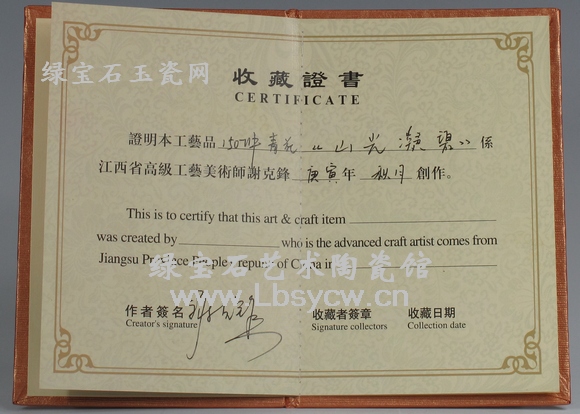 绿宝石玉瓷网
收藏證書
CERTIFICATE
證明本工藝品150件青花《山光凝碧》係
江西省高级工藝美術師謝克鋒 庚寅年 秋月 創作。
This is to certify that this art & craft item
was created by who is the advanced craft artist comes from
Jiangsu Province People republic of China in
绿宝石艺术陶瓷馆
www.Lbsycw.cn
作者簽名
收藏者簽章
收藏日期
Creator's signature
Signature collectors
Collection date